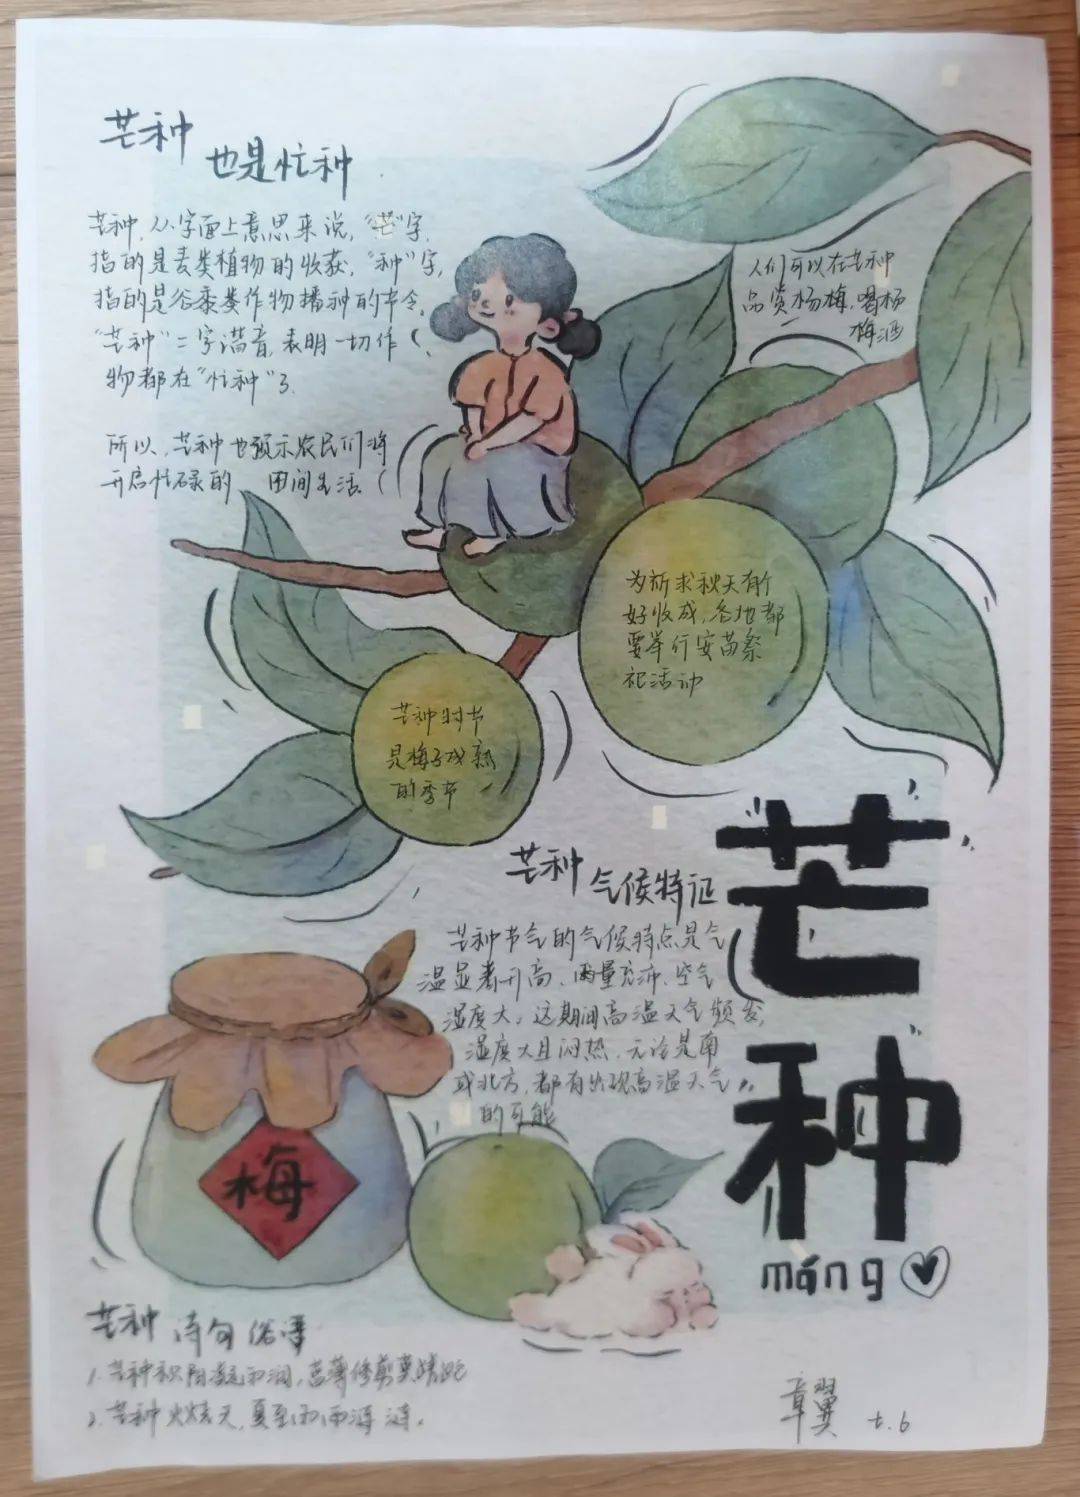 芒种
也是忙种
芒种,从字面上意思来说,"芒"字,
指的是麦类植物的收获,"种"字,
指的是谷黍类作物播种的节令,
"芒种"二字谐音,表明一切作
物都在"忙种"了.
所以,芒种也预示农民们将
开启忙碌的 田间生活
人们可以在芒种
品赏杨梅,喝杨
梅酒
为祈求秋天有个
好收成,各地都
要举行安苗祭
祀活动
芒种时节
是梅子成熟
的季节
芒种
气候特征
芒种节气的气候特点是气
温显著升高、雨量充沛、空气
湿度大。这期间高温天气频发,
湿度大且闷热,无论是南
或北方,都有出现高温天气
的可能
芒种
máng
梅
芒种 诗句 俗语
1. 芒种
2. 芒种火烧天,夏至雨涟涟。
章翼 七.6